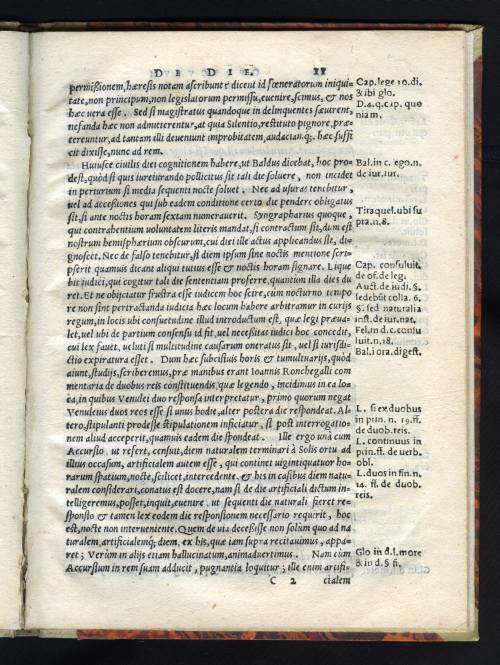 DE DIE. 11
permißionem, hæresis notam ascribunt: dicent id fœneratorum iniqui-
tate, non principum, non legislatorum permissu, euenire, scimus, & nos
hæc uera esse. Sed si magistratus quandoque in delinquentes sæuirent,
nefanda hæc non admitterentur, at quia Silentio, restituto pignore, præ-
tereuntur, ad tantam illi deueniunt improbitatem, audaciamq́;. hæc suffi
cit dixisse, nunc ad rem.
Cap. lege 10. di.
& ibi glo.
D. 4. q. cap. quo
niam.
Huiusce ciuilis diei cognitionem habere, ut Baldus dicebat, hoc pro-
dest, quòd si quis iureiurando pollicitus sit tali die soluere, non incidet
in periurium si media sequenti nocte soluet. Nec ad usuras tenebitur,
uel ad accessiones qui sub eadem conditione certo die pendere obligatus
sit, si ante noctis horam sextam numerauerit. Syngrapharius quoque,
qui contrahentium uoluntatem literis mandat, si contractum sit, dum est
nostrum hemispharium obscurum, cui diei ille actus applicandus sit, di-
gnoscet. Nec de falso tenebitur, si diem ipsum sine noctis mentione scri-
pserit quamuis dicant aliqui tutius esse & noctis horam signare. Lique
bit iudici, qui cogitur tali die sententiam proferre, quantum illa dies du
ret. Et ne obijciatur frustra esse iudicem hoc scire, cùm nocturno tempo
re non sint pertractanda iudicia hæc locum habere arbitramur in curijs
regum, in locis ubi consuetudine illud introductum est, quæ legi præua-
let, uel ubi de partium consensu id fit, uel necessitas iudici hoc concedit,
cui lex fauet, ueluti si multitudine causarum oneratus sit, uel si iurisdi-
ctio expiratura esset. Dum hæc subcisiuis horis & tumultuarijs, quòd
aiunt, studijs, scriberemus, præ manibus erant Ioannis Ronchegalli com
mentaria de duobus reis constituendis, quæ legendo, incidimus in ea lo
ca, in quibus Venulei duo responsa interpretatur, primo quorum negat
Venuleius duos reos esse si unus hodie, alter postera die respondeat. Al-
tero, stipulanti prodesse stipulationem inficiatur, si post interrogatio-
nem aliud acceperit, quamuis eadem die spondeat. Ille ergo unà cum
Accursio ut refert, censuit, diem naturalem terminari à Solis ortu ad
illius occasum, artificialem autem esse, qui continet uigintiquatuor ho-
rarum spatium, nocte, scilicet, intercedente. & his in casibus diem natu-
ralem considerari, conatus est docere, nam si de die artificiali dictum in-
telligeremus, posset, inquit, euenire ut sequenti die naturali fieret re-
sponsio & tamen lex eodem die responsionem necessario requirit, hoc
est, nocte non interueniente. Quem de uia decessisse non solùm quo ad na
turalem, artificialemq́; diem, ex his, quæ iam supra recitauimus, appa-
ret; Verùm in alijs etiam hallucinatum, animaduertimus. Nam cùm
Accursium in rem suam adducit, pugnantia loquitur; ille enim artifi-
Bal. in c. ego. n.
de iur. iur.
Tiraquel. ubi su
pra. n. 8.
Cap. consuluit.
de of. de leg.
Auct. de iudi. §.
sedebūt colla. 6.
§. sed naturalia
inst. de iur. nat.
Fel. in d. c. consu
luit. n. 18.
Bal. i ora. digest.
L. si ex duobus
in prin. n. 19. ff.
de duob. reis.
L. continuus in
prin. ff. de uerb.
obl.
L. duos in fin. n.
14. ff. de duob.
reis.
Glo in d. l. more
& in d. § fi.
C 2 cialem